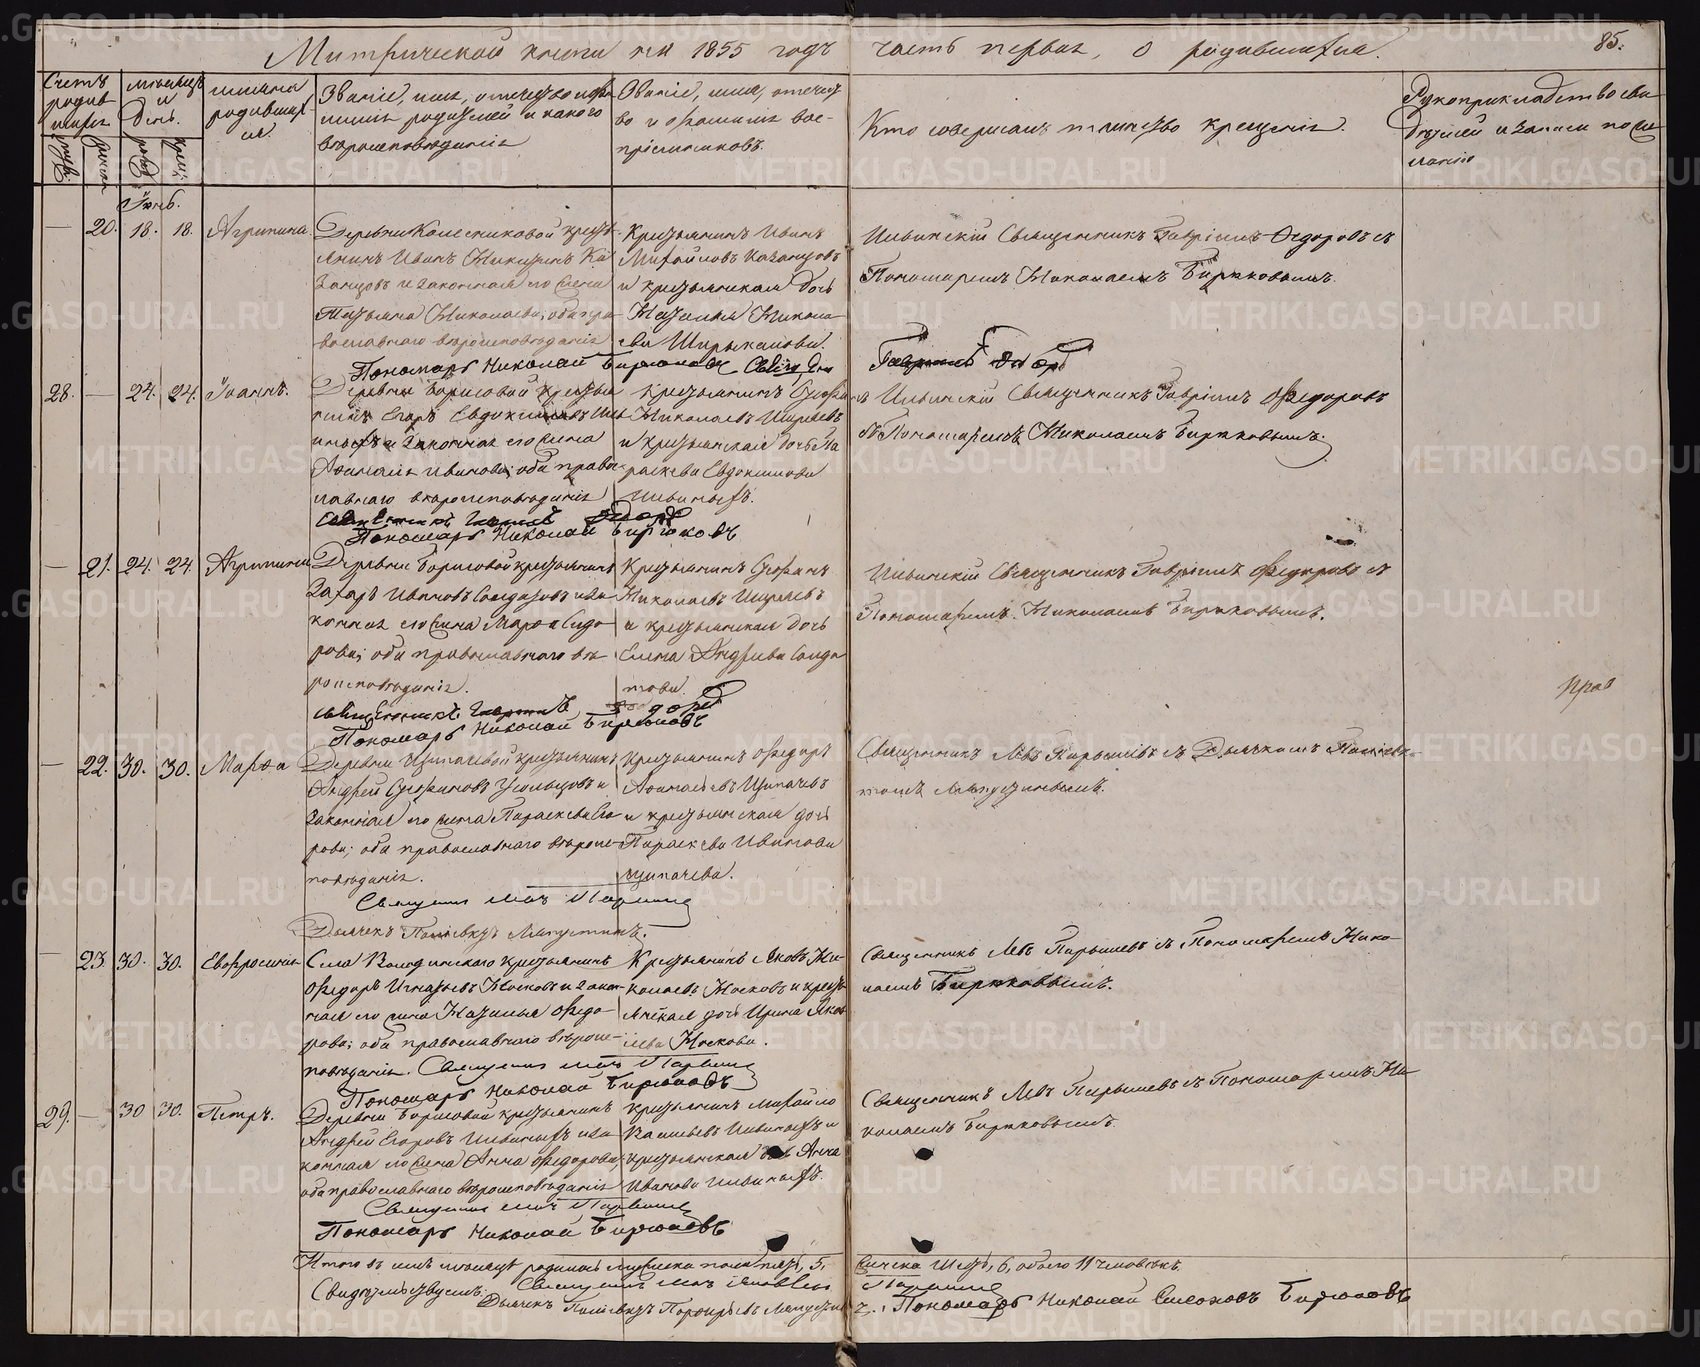 Метрической книги на 1855 годъ часть первая, о родившихся.
85.
Счетъ родив
шихся
Мѣсяцъ
и
День.
имена
родивших
ся.
Званіе, имя, отечество и фами
лія родителей и какого
вѣроисповѣданія
Званіе, имя, отечест
во и фамилія вос-
пріемниковъ.
Кто совершалъ таинство крещенія.
Рукоприкладство сви
дѣтелей и записи по же
ланію
20. 18. 18. Агрипина.
Деревни Колесниковой кресть
янинъ Иванъ Никитинъ Ка
занцовъ и законная его жена
Татьяна Николаева; оба пра
вославнаго вѣроисповѣданія
Крестьянинъ Иванъ
Михайловъ Казанцовъ
и крестьянская дочь
Наталья Никола-
ева Ширыкалова.
Ильинскій Священникъ Гавріилъ Ѳедоровъ съ
Пономаремъ Николаемъ Бирюковымъ.
Пономарь Николай Бирюковъ
28. — 24. 24. Іоаннъ.
Деревни Борисовой крестья
нинъ Егоръ Евдокимовъ Иль
иныхъ и законная его жена
Афанасья Иванова; оба правос
лавнаго вѣроисповѣданія
Крестьянинъ Стефанъ
Николаевъ Ширяевъ
и крестьянская дочь Па
раскева Евдокимова
Ильиныхъ.
Ильинскій Священникъ Гавріилъ Ѳедоровъ
съ Пономаремъ Николаемъ Бирюковымъ.
Пономарь Николай Бирюковъ
— 21. 24. 24. Агрипина
Деревни Борисовой крестьянинъ
Захаръ Ивановъ Солдатовъ и за
конная его жена Марѳа Сидо
рова; оба православнаго вѣ
роисповѣданія.
Крестьянинъ Стефанъ
Николаевъ Ширяевъ
и крестьянская дочь
Елена Андреева Солда
това.
Ильинскій Священникъ Гавріилъ Ѳедоровъ съ
Пономаремъ Николаемъ Бирюковымъ.
Пономарь Николай Бирюковъ
— 22. 30. 30. Марѳа
Деревни Щипачевой крестьянинъ
Андрей Стефановъ Усольцовъ и
законная его жена Параскева Его
рова; оба православнаго вѣроис-
повѣданія.
Крестьянинъ Ѳедоръ
Афанасьевъ Щипачевъ
и крестьянская дочь
Параскева Иванова
Щипачева.
Священникъ Левъ Парышевъ съ Дьячкомъ
— 23. 30. 30. Евфросинія
Села Володинскаго крестьянинъ
Ѳедоръ Игнатьевъ Носковъ и закон-
ная его жена Наталья Ѳедо-
рова; оба православнаго вѣроис-
повѣданія.
Крестьянинъ Яковъ Ни-
колаевъ Носковъ и кресть
янская дочь Ирина Яков
лева Носкова.
Священникъ Левъ Парышевъ съ Пономаремъ Нико-
лаемъ Бирюковымъ.
Пономарь Николай Бирюковъ
29. — 30 30. Петръ.
Деревни Борисовой крестьянинъ
Андрей Егоровъ Ильиныхъ и за
конная его жена Анна Ѳедорова;
оба православнаго вѣроисповѣданія
Крестьянинъ Михайло
Васильевъ Ильиныхъ и
крестьянская дочь Анна
Иванова Ильиныхъ.
Священникъ Левъ Парышевъ съ Пономаремъ Ни
колаемъ Бирюковымъ.
Пономарь Николай Бирюковъ
Итого въ іюнѣ мѣсяцѣ родилось мужеска пола пять, 5, женска шесть, 6, обоего 11 человѣкъ.
Свидѣтельствуемъ:
Пономарь Николай Бирюковъ
METRIKI.GASO-URAL.RU